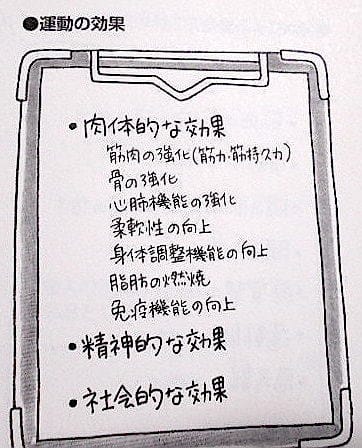 ●運動の効果
・肉体的な効果
筋肉の強化(筋力・筋持久力)
骨の強化
心肺機能の強化
柔軟性の向上
身体調整機能の向上
脂肪の燃焼
免疫機能の向上
・精神的な効果
・社会的な効果